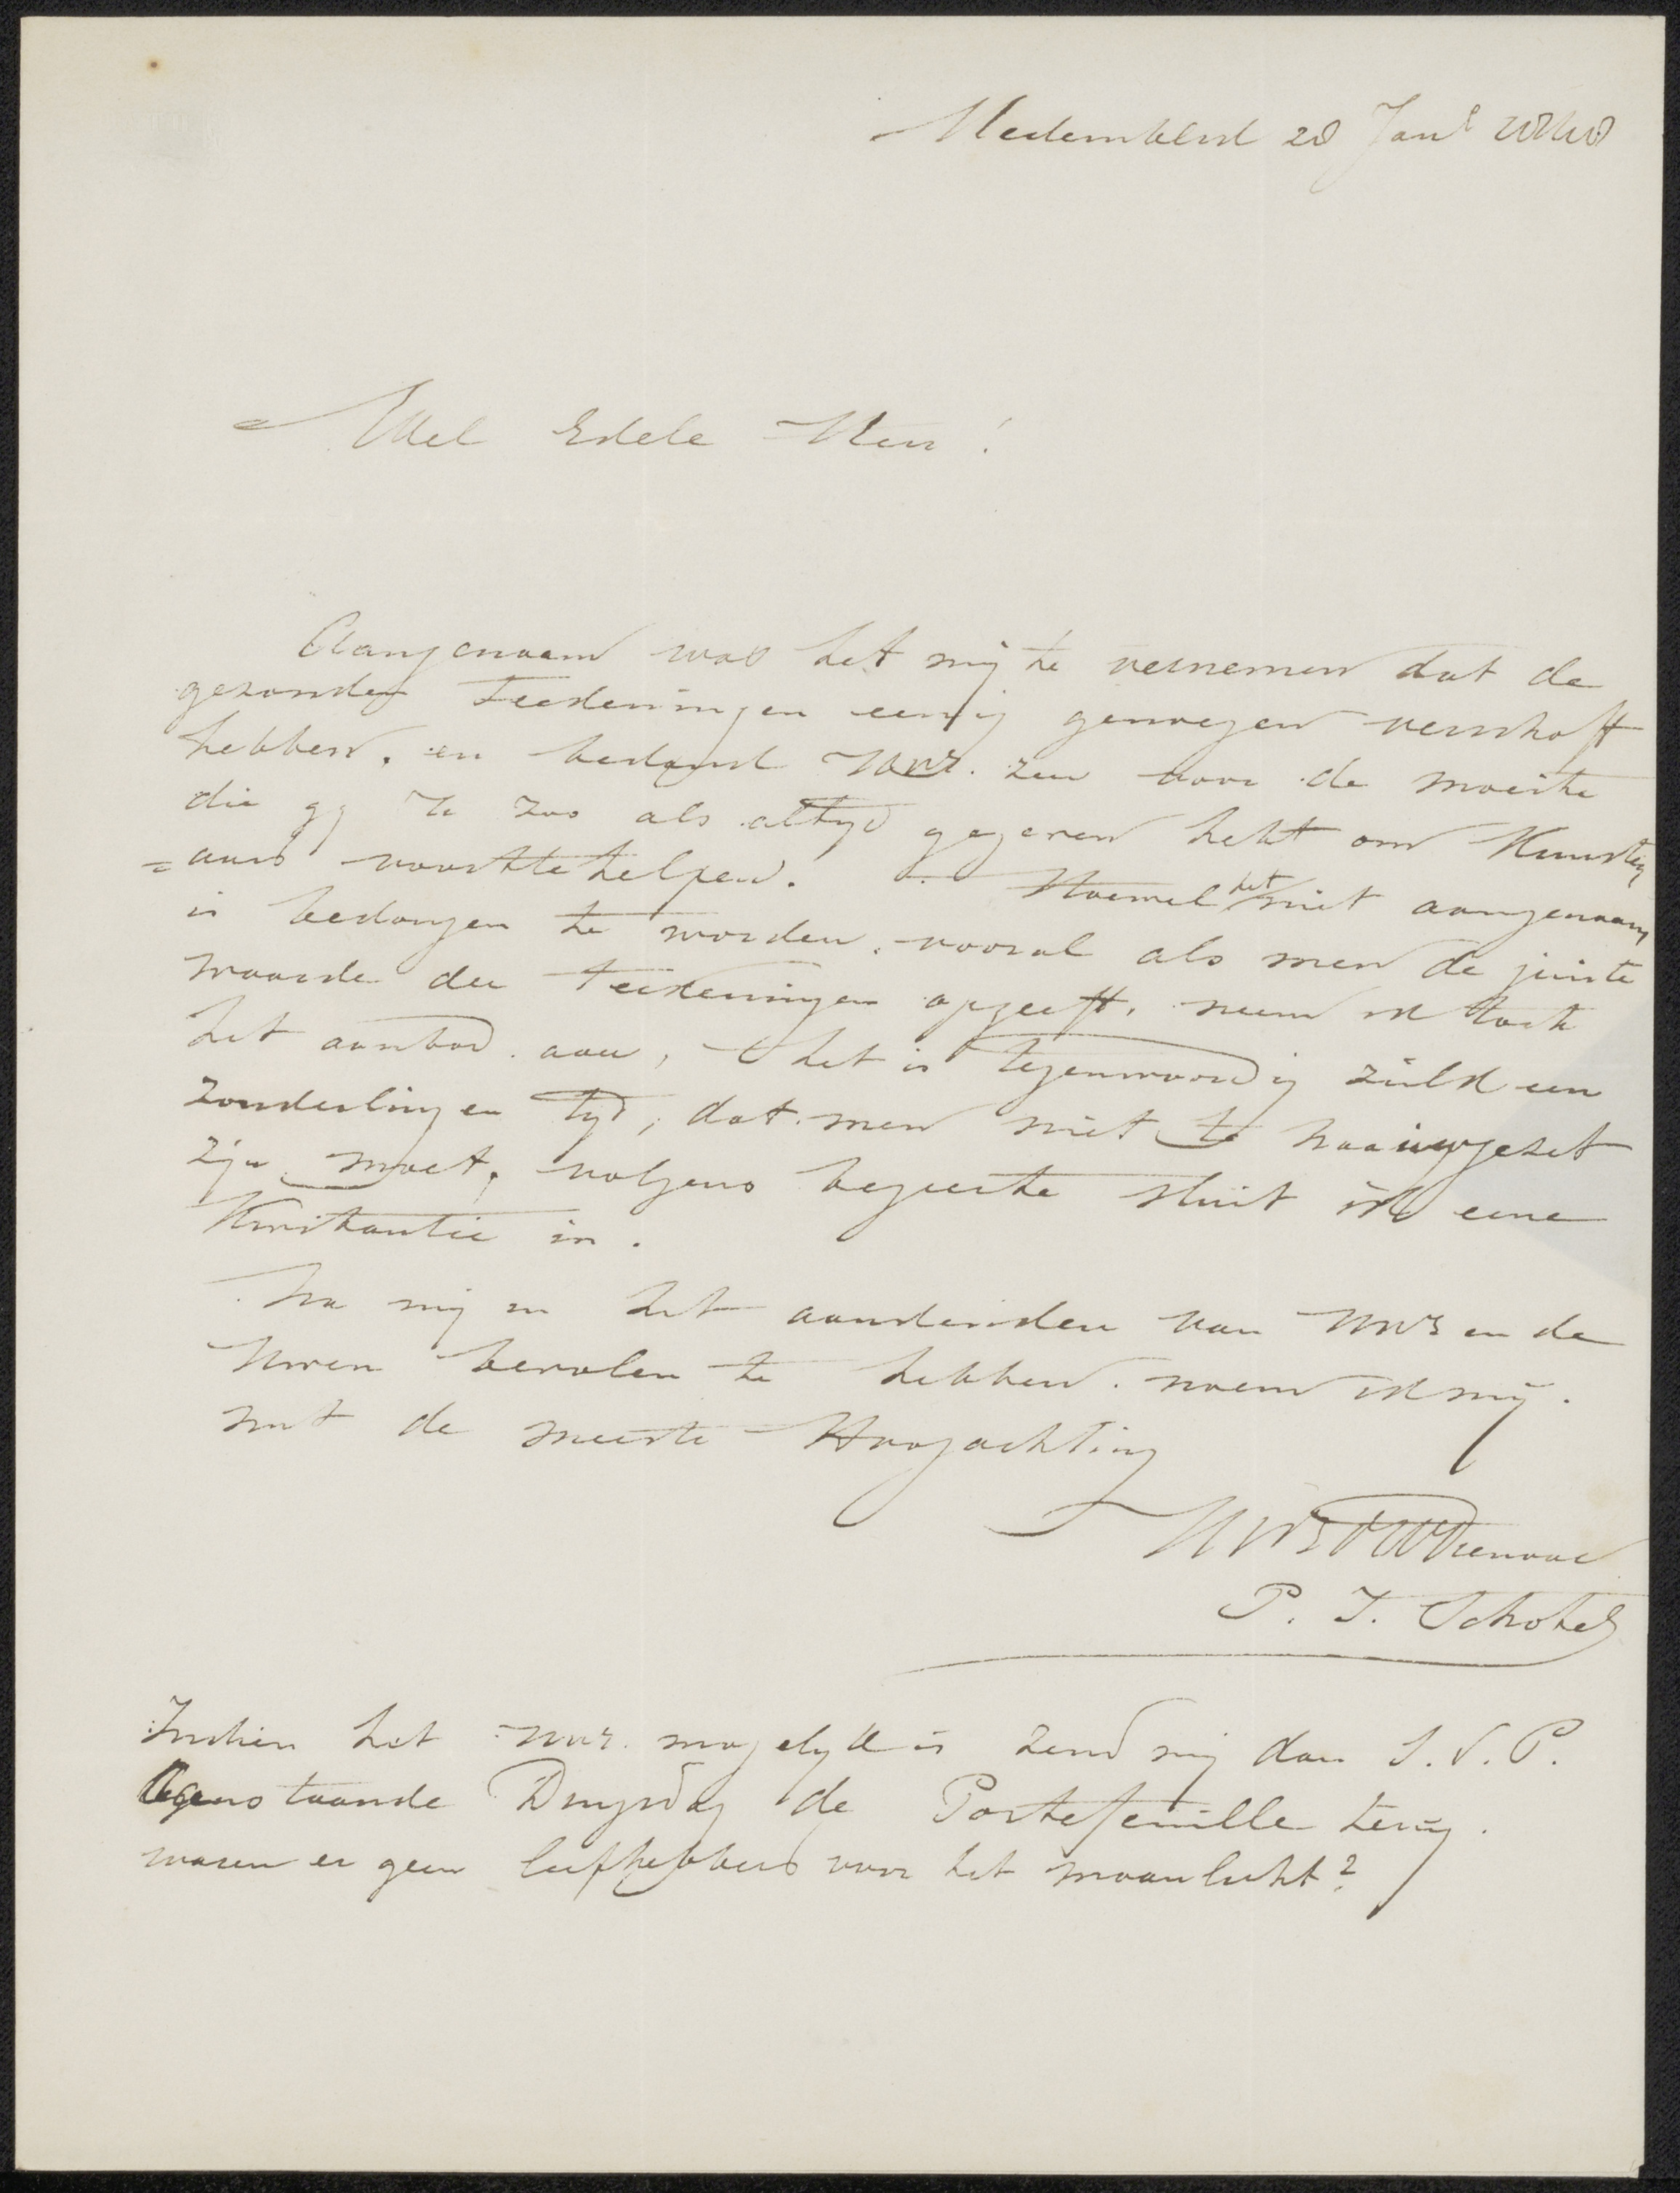 Medemblik 28 Jan^r 1848
Wel Edele Heer!
Aangenaam was het mij te vernemen dat de
gezonden Teekeningen eenig genoegen verschaft
hebben, en bedank UWE. zeer voor de moeite
die gy U zoo als altyd gegeven hebt om Kunsten
=aars voorttehelpen. Hoewel het niet aangenaam
is bedongen te worden, vooral als men de juiste
waarde der Teekeningen opgeeft, neem ik toch
het aanbod aan, het is tegenwoordig zulk een
zonderlingen tyd, dat men niet te naauwgezet
zijn moet, volgens begeerte sluit ik eene
Kwitantie in.
Na mij in het aandenken van UWE en de
Uwen bevolen te hebben, noem ik mij.
met de meeste Hoogachting
UWE DWDienaar
P. J. Schotel
Indien het UWE. mogelyk is zend mij dan S.V.P.
aanstaande Dingsdag de Portefeuille terug.
waren er geen liefhebbers voor het maanlicht?